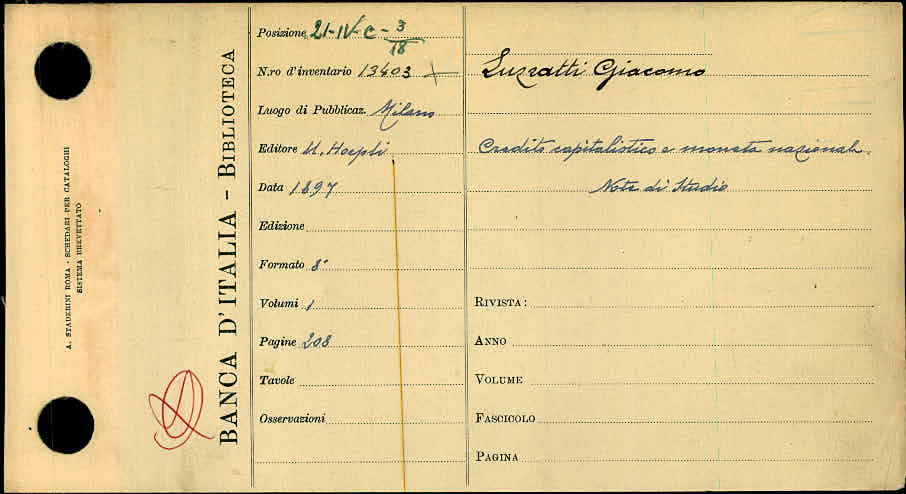 A. STADERINI ROMA - SCHEDARI PER CATALOGHI
SISTEMA BREVETTATO
BANCA D'ITALIA - BIBLIOTECA
Posizione 21-IV-C-3/18
N.ro d'inventario 13403
Luogo di Pubblicaz. Milano
Editore U. Hoepli
Data 1897
Edizione
Formato 8°
Volumi 1
Pagine 208
Tavole
Osservazioni
Luzzatti Giacomo
Credito capitalistico e moneta nazionale.
Note di Studio
RIVISTA:
ANNO
VOLUME
FASCICOLO
PAGINA